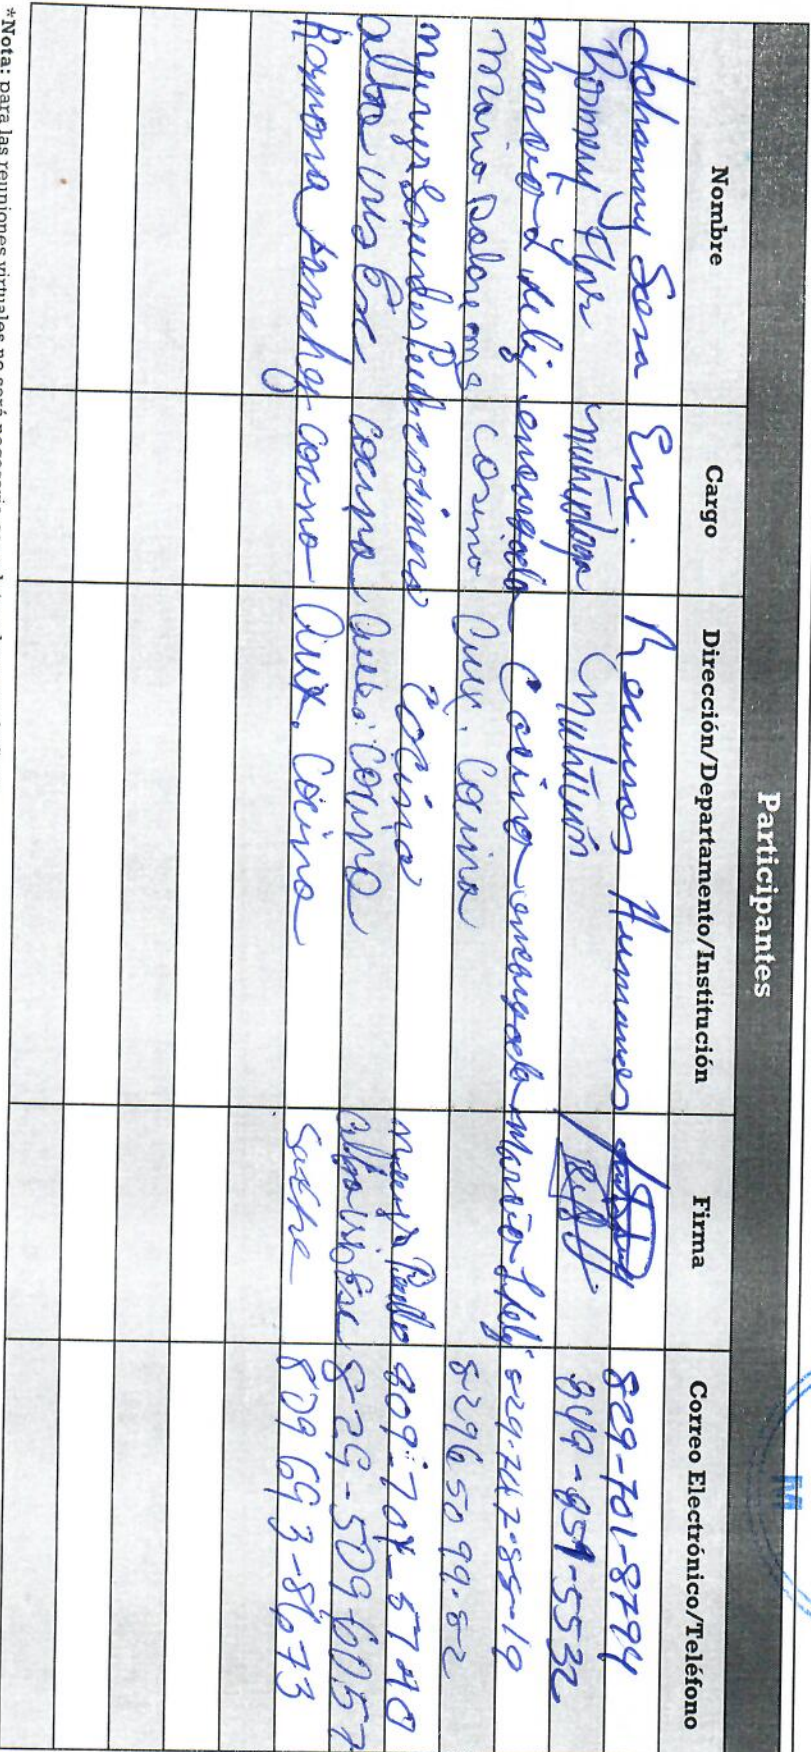 Participantes
Nombre Cargo Dirección/Departamento/Institución Firma Correo Electrónico/Teléfono
Johanny Sosa Enc. Recursos Humanos 829-701-8794
Rosmery Flor nutriologa Nutrición 849-859-5532
encargada Cocina encargada 829-747-85-19
Maria Dolore cosina Aux. Cocina 829650 99-82
cocinera Cocina 809-707-5740
alba iris cocina Cocina 829-5096057
Ramona Sanchez cocina Aux. Cocina 809 693-8673
*Nota: para las reuniones virtuales no será necesario